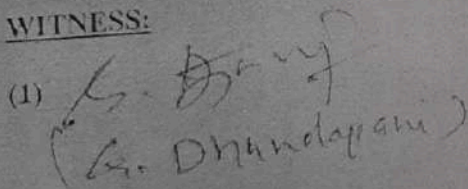 WITNESS:
(1) G.
(G. Dhandapani)